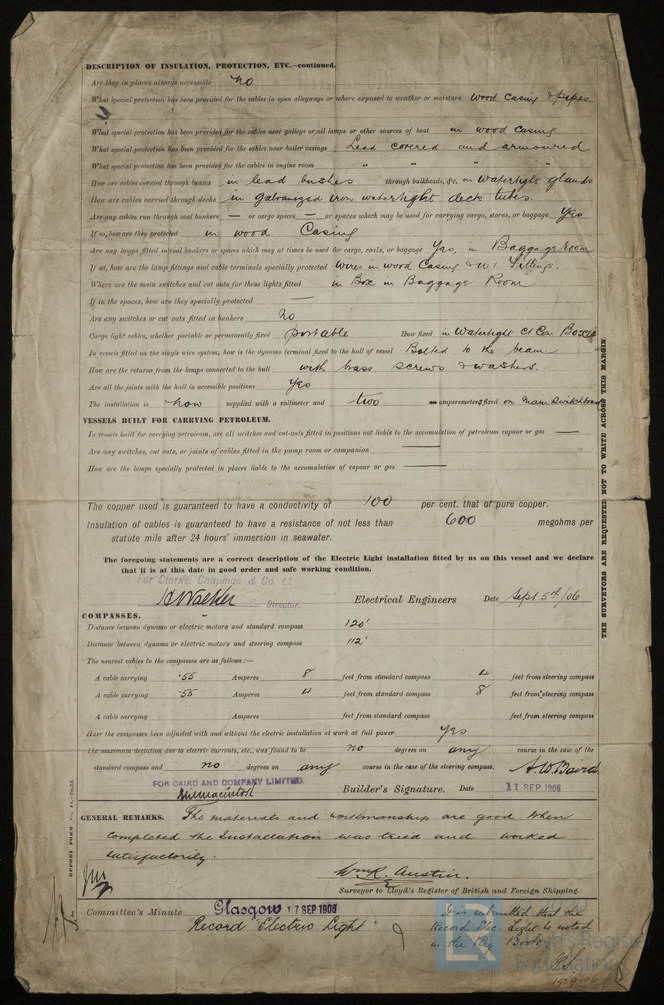 DESCRIPTION OF INSULATION, PROTECTION, ETC.—continued.
Are they in places always accessible no
What special protection has been provided for the cables in open alleyways or where exposed to weather or moisture wood casing & pipes.
What special protection has been provided for the cables near galleys or oil lamps or other sources of heat in wood casing
What special protection has been provided for the cables near boiler casings Lead covered and armoured
What special protection has been provided for the cables in engine room " " " "
How are cables carried through beams in lead bushes through bulkheads, &c. in Watertight glands
How are cables carried through decks in galvanized iron watertight deck tubes.
Are any cables run through coal bunkers — or cargo spaces — or spaces which may be used for carrying cargo, stores, or baggage yes
If so, how are they protected in wood Casing
Are any lamps fitted in coal bunkers or spaces which may at times be used for cargo, coals, or baggage Yes, in Baggage Room
If so, how are the lamp fittings and cable terminals specially protected wires in wood Casing & W.T. Fittings.
Where are the main switches and cut outs for these lights fitted in Box in Baggage Room
If in the spaces, how are they specially protected —
Are any switches or cut outs fitted in bunkers No
Cargo light cables, whether portable or permanently fixed portable How fixed in Watertight C.I. Boxes
In vessels fitted on the single wire system, how is the dynamo terminal fixed to the hull of vessel Bolted to the beam
How are the returns from the lamps connected to the hull with brass screws & washers.
Are all the joints with the hull in accessible positions yes
The installation is now supplied with a voltmeter and two amperemeters fixed on Main Switchboard
VESSELS BUILT FOR CARRYING PETROLEUM.
In vessels built for carrying petroleum, are all switches and cut-outs fitted in positions not liable to the accumulation of petroleum vapour or gas —
Are any switches, cut outs, or joints of cables fitted in the pump room or companion —
How are the lamps specially protected in places liable to the accumulation of vapour or gas —
The copper used is guaranteed to have a conductivity of 100 per cent. that of pure copper.
Insulation of cables is guaranteed to have a resistance of not less than 600 megohms per
statute mile after 24 hours' immersion in seawater.
The foregoing statements are a correct description of the Electric Light installation fitted by us on this vessel and we declare
that it is at this date in good order and safe working condition.
For Clarke, Chapman & Co. Ld
Walker Director. Electrical Engineers Date Sept 5th/06
COMPASSES.
Distance between dynamo or electric motors and standard compass 120'
Distance between dynamo or electric motors and steering compass 112'
The nearest cables to the compasses are as follows:—
A cable carrying .55 Amperes 8 feet from standard compass 4 feet from steering compass
A cable carrying .55 Amperes 4 feet from standard compass 8 feet from steering compass
A cable carrying Amperes feet from standard compass feet from steering compass
Have the compasses been adjusted with and without the electric installation at work at full power Yes
The maximum deviation due to electric currents, etc., was found to be no degrees on any course in the case of the
standard compass and no degrees on any course in the case of the steering compass. A. W. Baird
FOR CAIRD AND COMPANY LIMITED.
Macintosh Builder's Signature. Date 11 SEP 1906
GENERAL REMARKS. The materials and workmanship are good. When
completed the Installation was tried and worked
satisfactorily.
Wm. R. Austin.
Surveyor to Lloyd's Register of British and Foreign Shipping.
Committee's Minute Glasgow 17 SEP 1906
Record "Electric Light"
It is submitted that the
Record Elec. Light be noted
in the Reg. Book
THE SURVEYORS ARE REQUESTED NOT TO WRITE ACROSS THIS MARGIN.
LR Lloyd's Register
Foundation